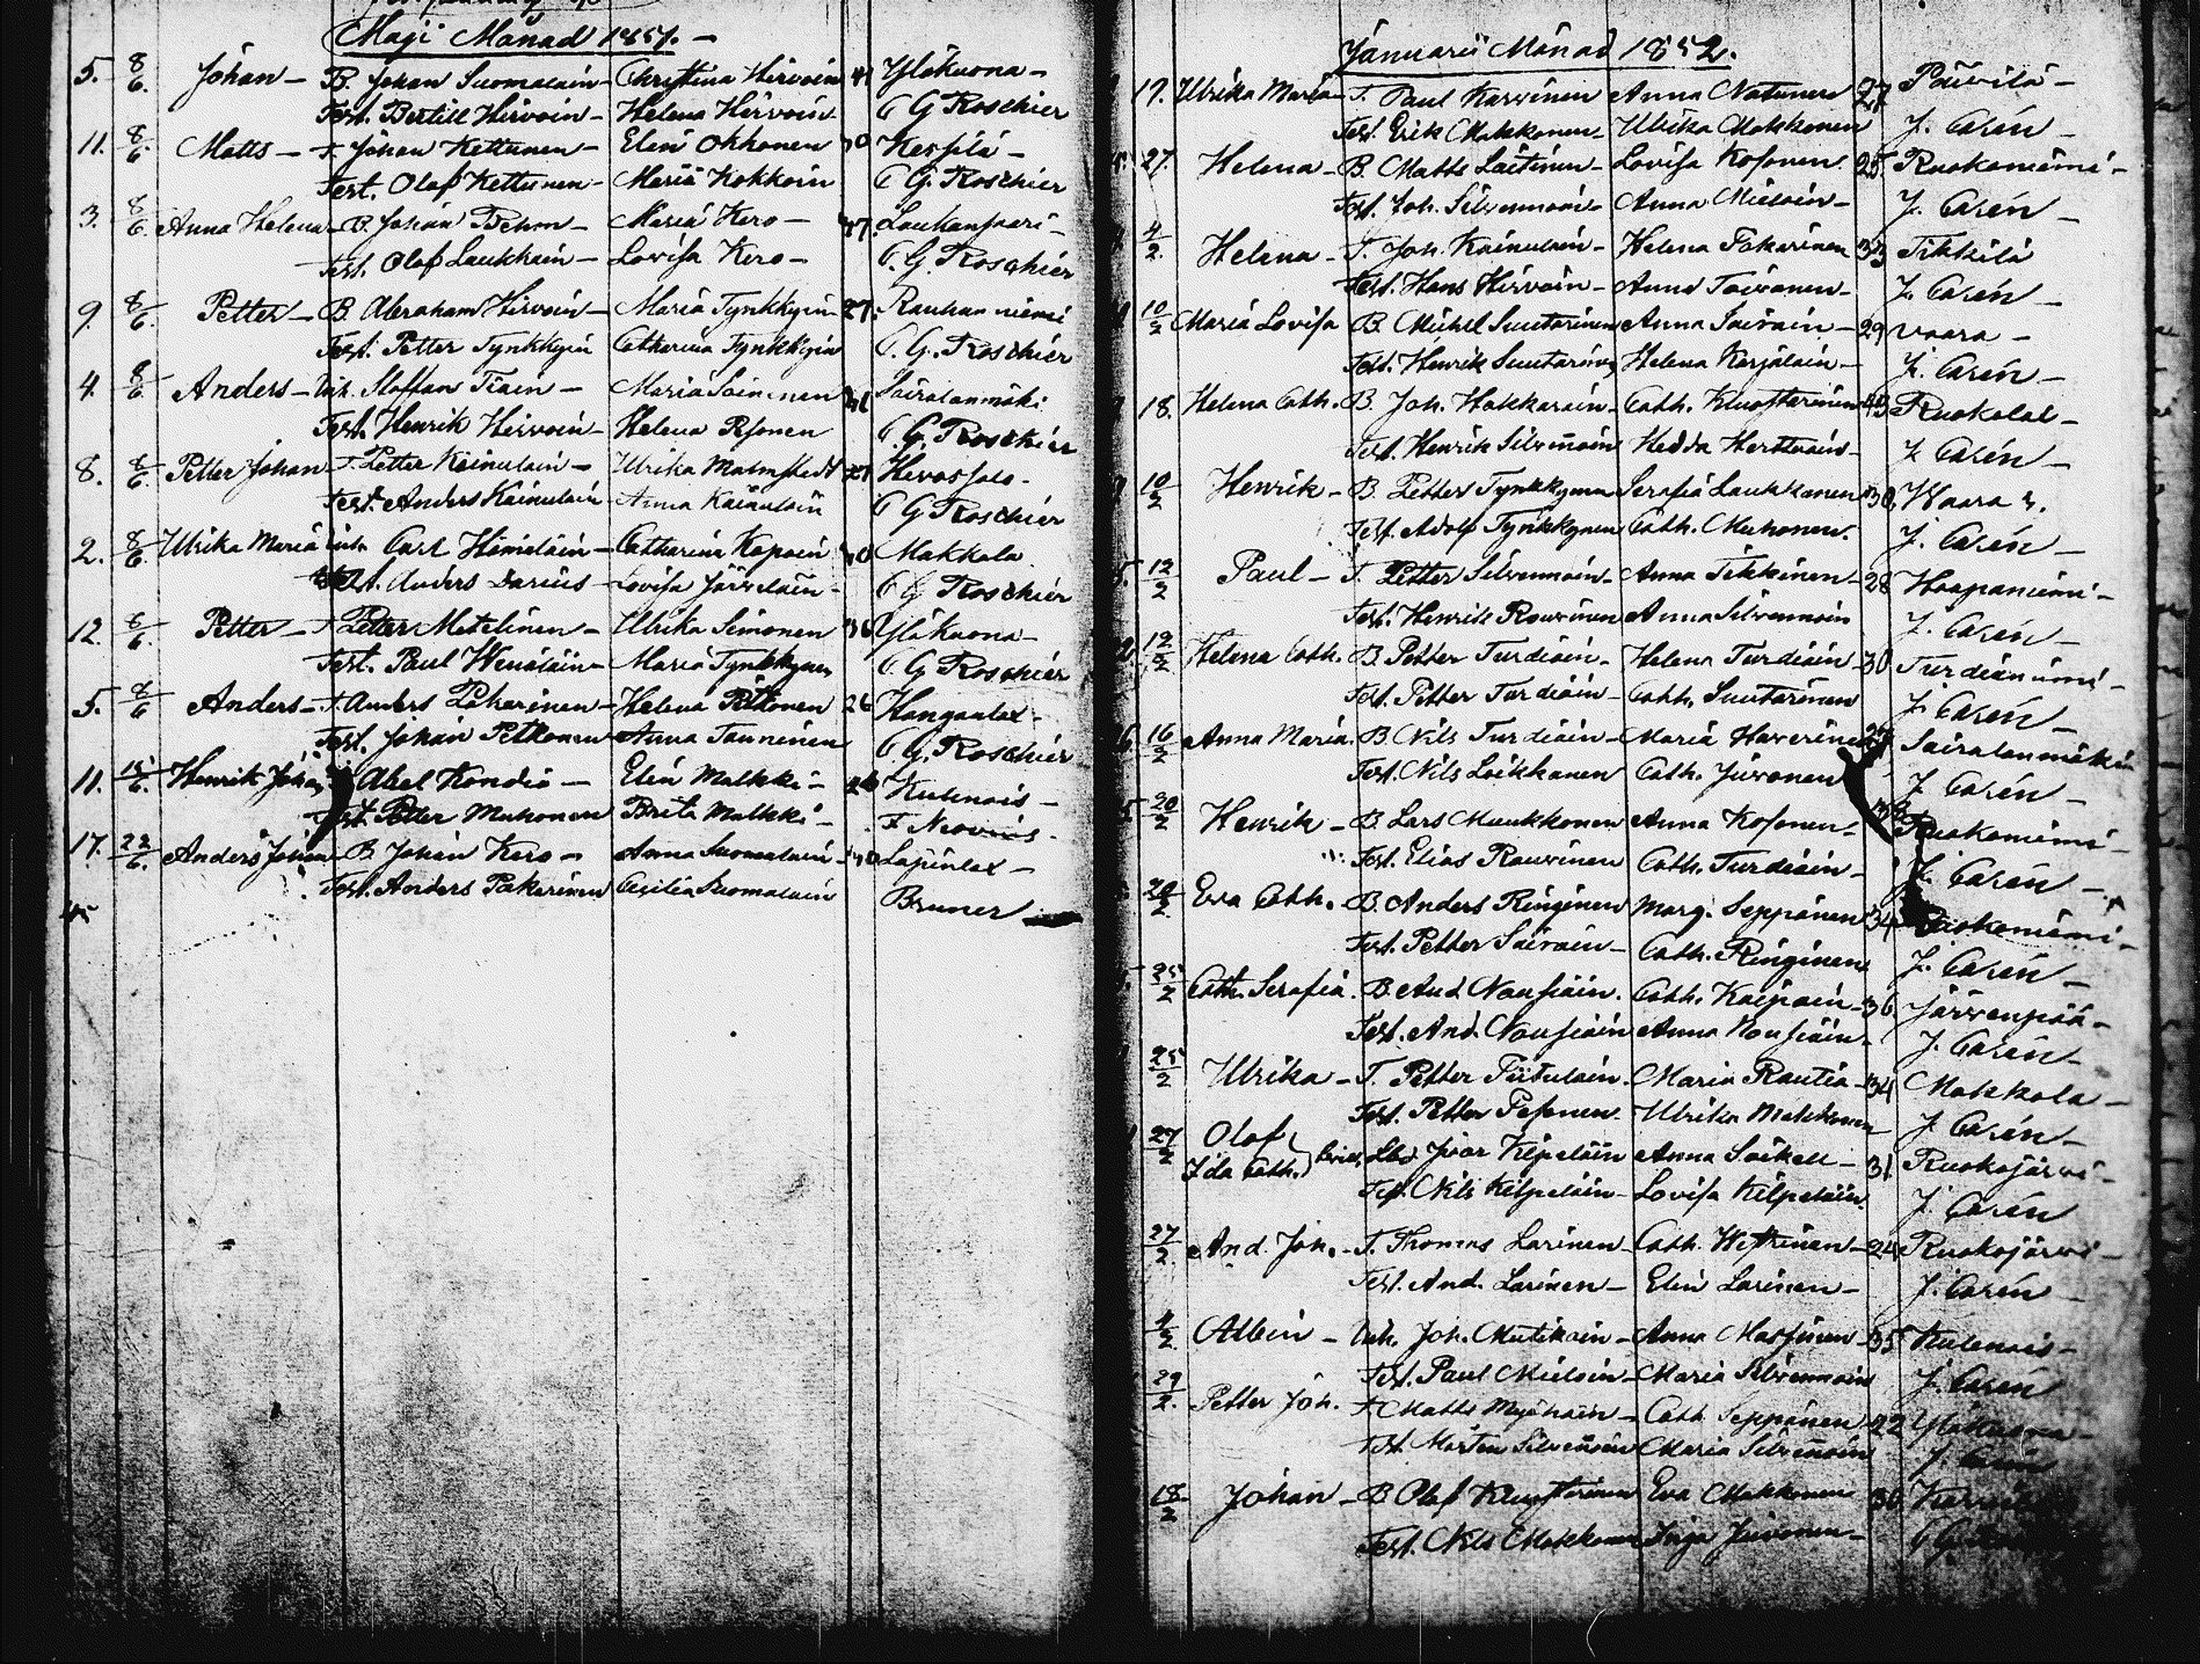 Maji Månad 1851. —
5. 8/6. Johan — B. Johan Suomalain — Christina Hirvoin 41 Yläkuona —
Test. Bertill Hirvoin — Helena Hirvoin C G Roschier
11. 8/6. Matts — T. Johan Kettunen — Elin Okkonen 30 Kesjilä —
Test. Olof Kettunen — Maria Kokkoin C G. Roschier
3. 8/6. Anna Helena — B. Johan — Maria Kero — 47. Laukansaari —
Test. Olof Laukkain — Lovisa Kero — C. G. Roschier
9. 8/6. Petter — B. Abraham Hirvoin — Maria Tynkkyin 27. Rauhaniemi
Test. Petter Tynkkyin Catharina Tynkkyin C. G. Roschier
4. 8/6. Anders — Inh. Staffan Tiain — Maria Soininen Sairalanmäki
Test. Henrik Hirvoin — Helena Pesonen C. G. Roschier
8. 8/6. Petter Johan — T. Petter Kainulain — Ulrika Malmstedt 27 Hevossalo —
Test. Anders Kainulain — Anna Kainulain C G Roschier
2. 8/6. Ulrika Maria Inh. Carl Himelain — Catharina Kopoin 40 Makkola
Test. Anders Darius — Lovisa Järvelain — C G Roschier
12. 8/6. Petter — T Petter Matelinen — Ulrika Simonen 36 Yläkuona —
Test. Paul Wenäläin — Maria Tynkkynen C. G Roschier
5. 8/6 Anders — T. Anders Pakarinen — Helena Petkonen 26 Hanganlax —
Test. Johan Petkonen — Anna Tanninen C. G. Roschier
11. 15/6. Henrik Johan Abel Kondia — Elin Malkki — 26 Kulenois —
Test Petter Muhonen Brita Malkki — F Neovius —
17. 22/6. Anders Johan — B. Johan Kero — Anna Suomalain — 40 Lapinlax —
Test. Anders Pakarinen Cecilia Suomalain Bruner
45
Januarii Månad 1852.
17. Ulrika Maria — T. Paul Karvinen Anna Natunen 27 Päivilä —
Test. Erik Makkonen — Ulrika Makkonen J. Carén —
27. Helena — B. Matts Laitinen — Lovisa Kosonen 25. Ruokoniemi —
Test. Joh. Silvennoin — Anna Mieloin — J. Carén —
4/2. Helena — T. Joh. Kainulain — Helena Pakarinen 33 Tikkilä
Test. Hans Hirvoin — Anna Toivanen — J. Carén —
10/2 Maria Lovisa B. Michel Suutarinen Anna Sairain — 29 Vaara —
Test. Henrik Suutarinen Helena Karjalain — J. Carén —
18. Helena Cath. B. Joh. Hakkarain — Cath. Kuostarinen 45 Ruokolax —
Test. Henrik Silvennoin Hedda Herttuain — J Carén —
10/2 Henrik — B. Petter Tynkkynen Serafia Laukkanen 30. Waara
Test. Adolf Tynkkynen Cath. Muhonen. J. Carén —
12/2 Paul — T. Petter Silvennoin — Anna Tikkinen — 28 Haapaniemi —
Test. Henrik Rouvinen Anna Silvennoin J. Carén —
12/2 Helena Cath. B. Petter Turdiain — Helena Turdiain — 30 Turdianiemi —
Test. Petter Turdiain — Cath. Suutarinen J. Carén —
16/2 Anna Maria. B. Nils Turdiain — Maria Haverinen Sairalanmäki
Test. Nils Loikkanen Cath. Juvonen J Carén —
20/2 Henrik — B. Lars Muukkonen Anna Kosonen — 38 Ruokoniemi —
Test. Elias Rouvinen Cath. Turdiain — J. Carén —
20/2 Eva Cath. — B. Anders Ringinen Marg. Seppänen 34 Ruokoniemi —
Test. Petter Sairain — Cath. Ringinen J. Carén —
25/2 Cath. Serafia. B. And. Nousiain. Cath. Kaipain — 36. Järvenpää —
Test. And. Nousiain Anna Nousiain — J. Carén —
25/2 Ulrika — T. Petter Tiitulain. Maria Rautia — 34 Makkola —
Test. Petter Pesonen. Ulrika Makkonen J Carén —
27/2 Olof, Ida Cath. Ivar Kilpeläin Anna Säikell — 31 Ruokojärvi —
Test. Nils Kilpeläin — Lovisa Kilpeläin. J. Carén
27/2. And. Joh. — T. Thomas Larinen — Cath. Histrinen — 24 Ruokojärvi —
Test. And. Larinen — Elin Larinen — J. Carén —
4/2. Albin — Inh. Joh. Mutikain — Anna Marjinen — 35 Kulenois —
Test. Paul Mieloin — Maria Silvennoin J. Carén
29/2. Petter Joh. T. Matts Myöhäin — Cath Seppänen — 22 Yläkuona —
Test. Mårten Silvennoin Maria Silvennoin J Carén
18/2 Johan — B. Olof Kuostarinen Eva Makkonen 30
Test. Nils Makkonen Inga Juvonen — C G